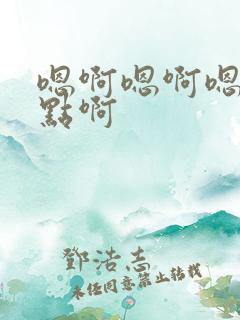 嗯啊嗯啊嗯
點啊
鄧浩志
未经同意禁止转载